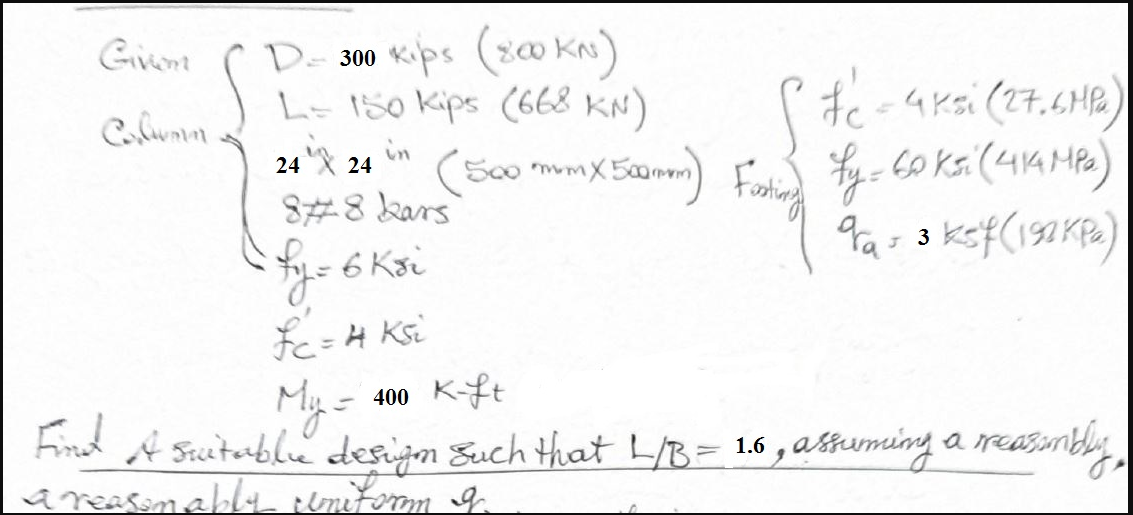 Given D = 300 kips (800 KN)
L = 150 kips (668 KN)
Column 24 in x 24 in (500 mm x 500 mm)
8#8 bars
fy = 6 Ksi
f'c = 4 Ksi
My = 400 K-ft
Footing f'c = 4 Ksi (27.6 MPa)
fy = 60 Ksi (414 MPa)
qa = 3 ksf (192 KPa)
Find A suitable design such that L/B = 1.6, assuming a reasombly,
a reasonably uniform q